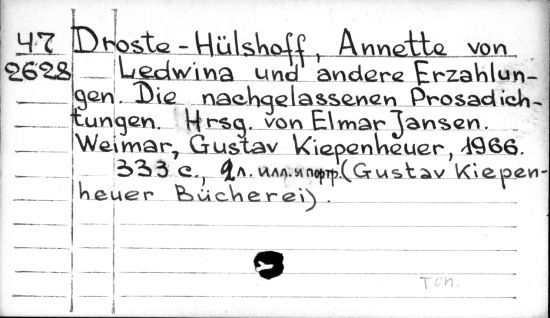 47 Droste-Hülshoff, Annette von
2628 Ledwina und andere Erzahlun-
gen. Die nachgelassenen Prosadich-
tungen. Hrsg. von Elmar Jansen.
Weimar, Gustav Kiepenheuer, 1966.
333 с., 2 л. илл. и портр. (Gustav Kiepen-
heuer Bücherei).